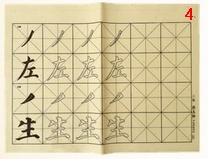 4
丿左丿生
丿左丿生
丿左丿生
丿左丿生